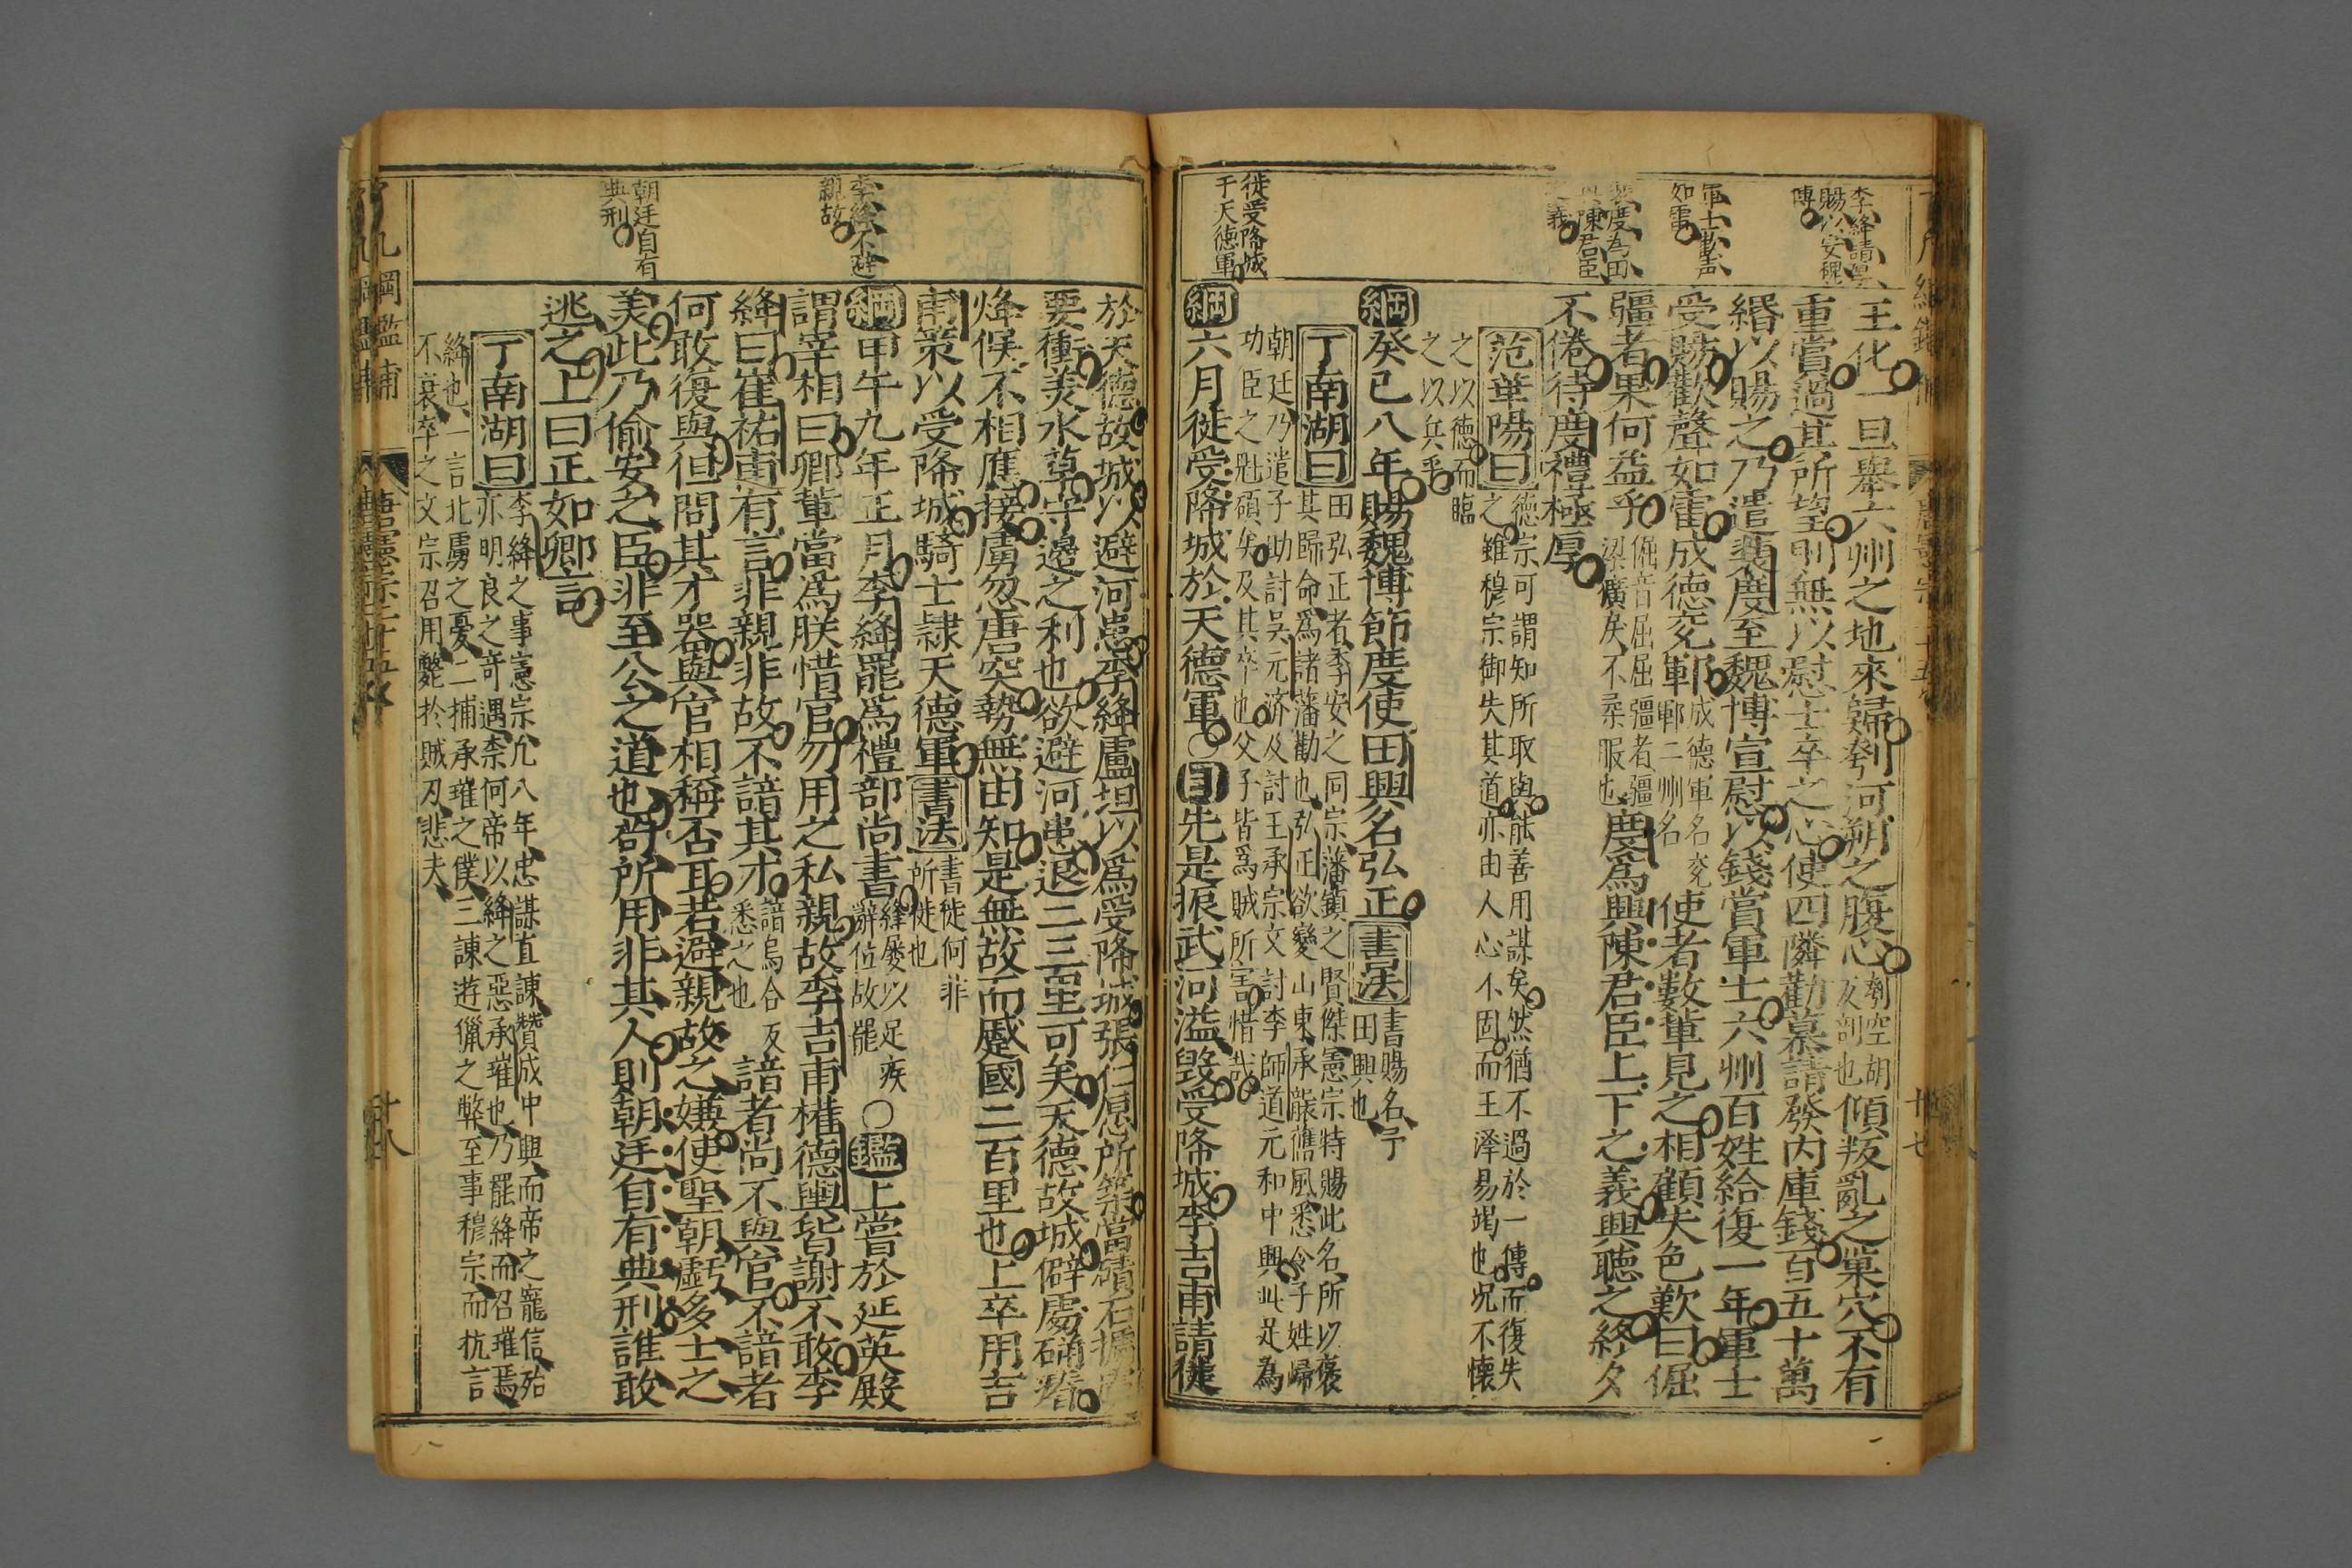 李絳請
賜以安魏
博
軍士歡声
如雷
裴度為田
興陳君臣
之義
徙受降城
于天德軍
王化一旦舉六州之地來歸刳河朔之腹心刳空胡反剖也傾叛亂之巢穴不有
重賞過其所望則無以慰士卒之心使四隣勸慕請發内庫錢百五十萬
緡以賜之乃遣裴度至魏博宣慰以錢賞軍士六州百姓給復一年軍士
受賜歡聲如雷成德兗鄆成德軍名兗鄆二州名使者數輩見之相顧失色歎曰倔
彊者果何益乎倔音屈屈彊者彊梁獷戾不柔服也度爲興陳君臣上下之義興聽之終夕
不倦待度禮極厚
范華陽曰德宗可謂知所取與能善用謀矣然猶不過於一傳而復失
之雖穆宗御失其道亦由人心不固而王泽易竭也况不懷
之以德而臨
之以兵乎
綱癸巳八年賜魏博節度使田興名弘正書法書賜名予田興也
丁南湖曰田弘正者季安之同宗藩鎮之賢傑憲宗特賜此名所以褒
其歸命爲諸藩勸也弘正欲變山東承襲舊風悉令子姓歸
朝廷乃遣子助討吴元济及討王承宗文討李師道元和中興此足為
功臣之魁碩矣及其卒也父子皆爲賊所害惜哉
綱六月徙受降城於天德軍○目先是振武河溢毀受降城李吉甫請徙
於天德故城以避河患李絳盧坦以爲受降城張仁愿所築當磧石據虜
要衝美水草守邊之利也欲避河患退二三里可矣天德故城僻處确瘠
烽候不相應接虜忽唐突勢無由知是無故而蹙國二百里也上卒用吉
甫策以受降城騎士隷天德軍書法書徙何非所徙也
綱甲午九年正月李絳罷爲禮部尚書絳屡以足疾辭位故罷○鑑上嘗於延英殿
謂宰相曰卿輩當爲朕惜官勿用之私親故李吉甫權德輿皆謝不敢李
絳曰崔祐甫有言非親非故不諳其才諳烏合反悉之也諳者尚不與官不諳者
何敢復與但問其才器與官相稱否耳若避親故之嫌使聖朝虧多士之
美此乃偷安之臣非至公之道也苟所用非其人則朝廷自有典刑誰敢
逃之上曰正如卿言
丁南湖曰李絳之事憲宗九八年忠謀直諫贊成中興而帝之寵信殆
亦明良之竒遇柰何帝以絳之惡承璀也乃罷絳而召璀焉
絳也一言北虜之憂二捕承璀之僕三諫遊獵之弊至事穆宗而抗言
不哀卒之文宗召用斃於賊刃悲夫
李絳不避
親故
朝廷自有
典刑
了凡綱鑑補
唐憲宗
十八